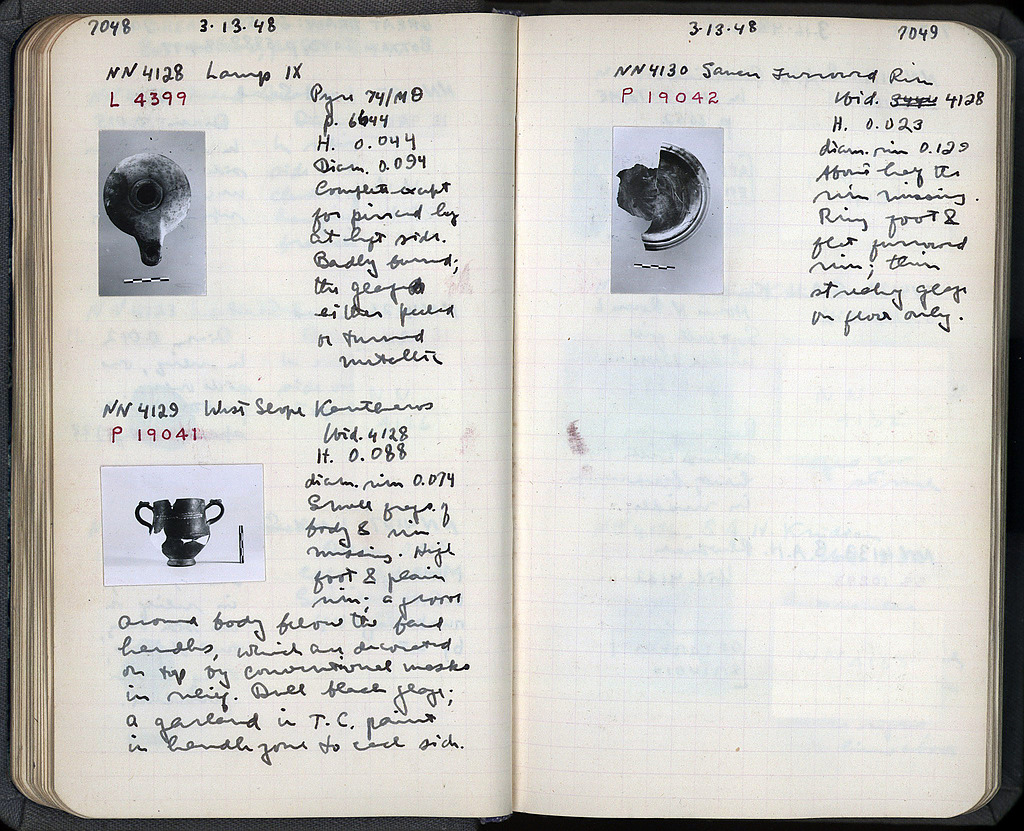 7048 3·13·48
NN 4128 Lamp IX
L 4399
Pyre 74/MΘ
p. 6644
H. 0.044
Diam. 0.094
Complete except
for pierced lug
at left side.
Badly burned;
the glaze
either peeled
or turned
metallic
NN 4129 West Slope Kantharos
P 19041
Ibid. 4128
H. 0.088
diam. rim 0.074
Small frags. of
body & rim
missing. High
foot & plain
rim; a groove
around body below the band
handles, which are decorated
on top by conventional masks
in relief. Dull black glaze;
a garland in T.C. paint
in handle zone to each side.
3·13·48 7049
NN 4130 Saucer Furrowed Rim
P 19042
Ibid. 4128
H. 0.023
diam. rim 0.129
About half the
rim missing.
Ring foot &
flat furrowed
rim; thin
streaky glaze
on floor only.